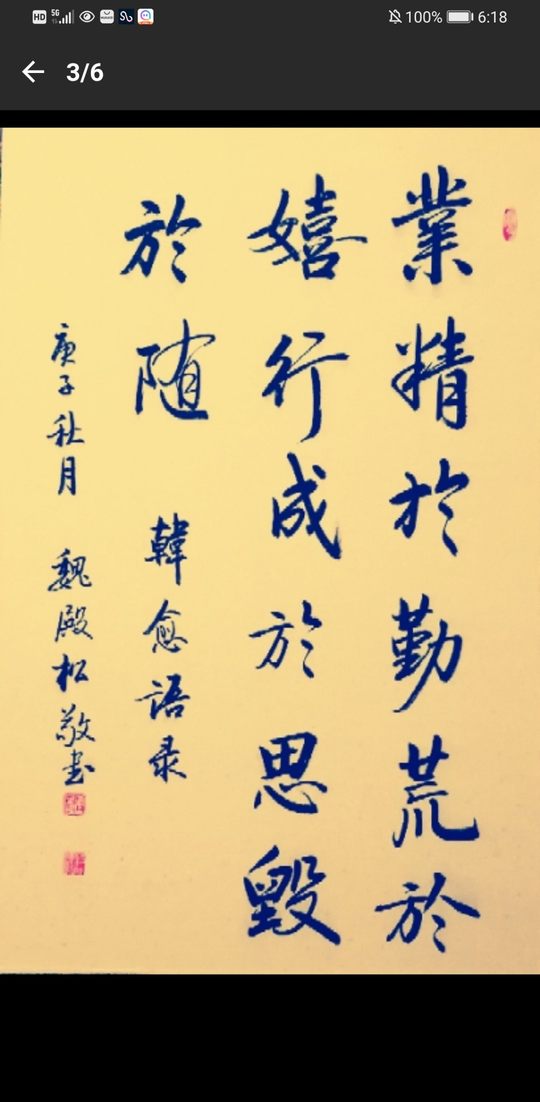 HD 5G 100% 6:18
3/6
業精於勤荒於
嬉行成於思毀
於随
韓愈语录
庚子秋月 魏殿松敬书